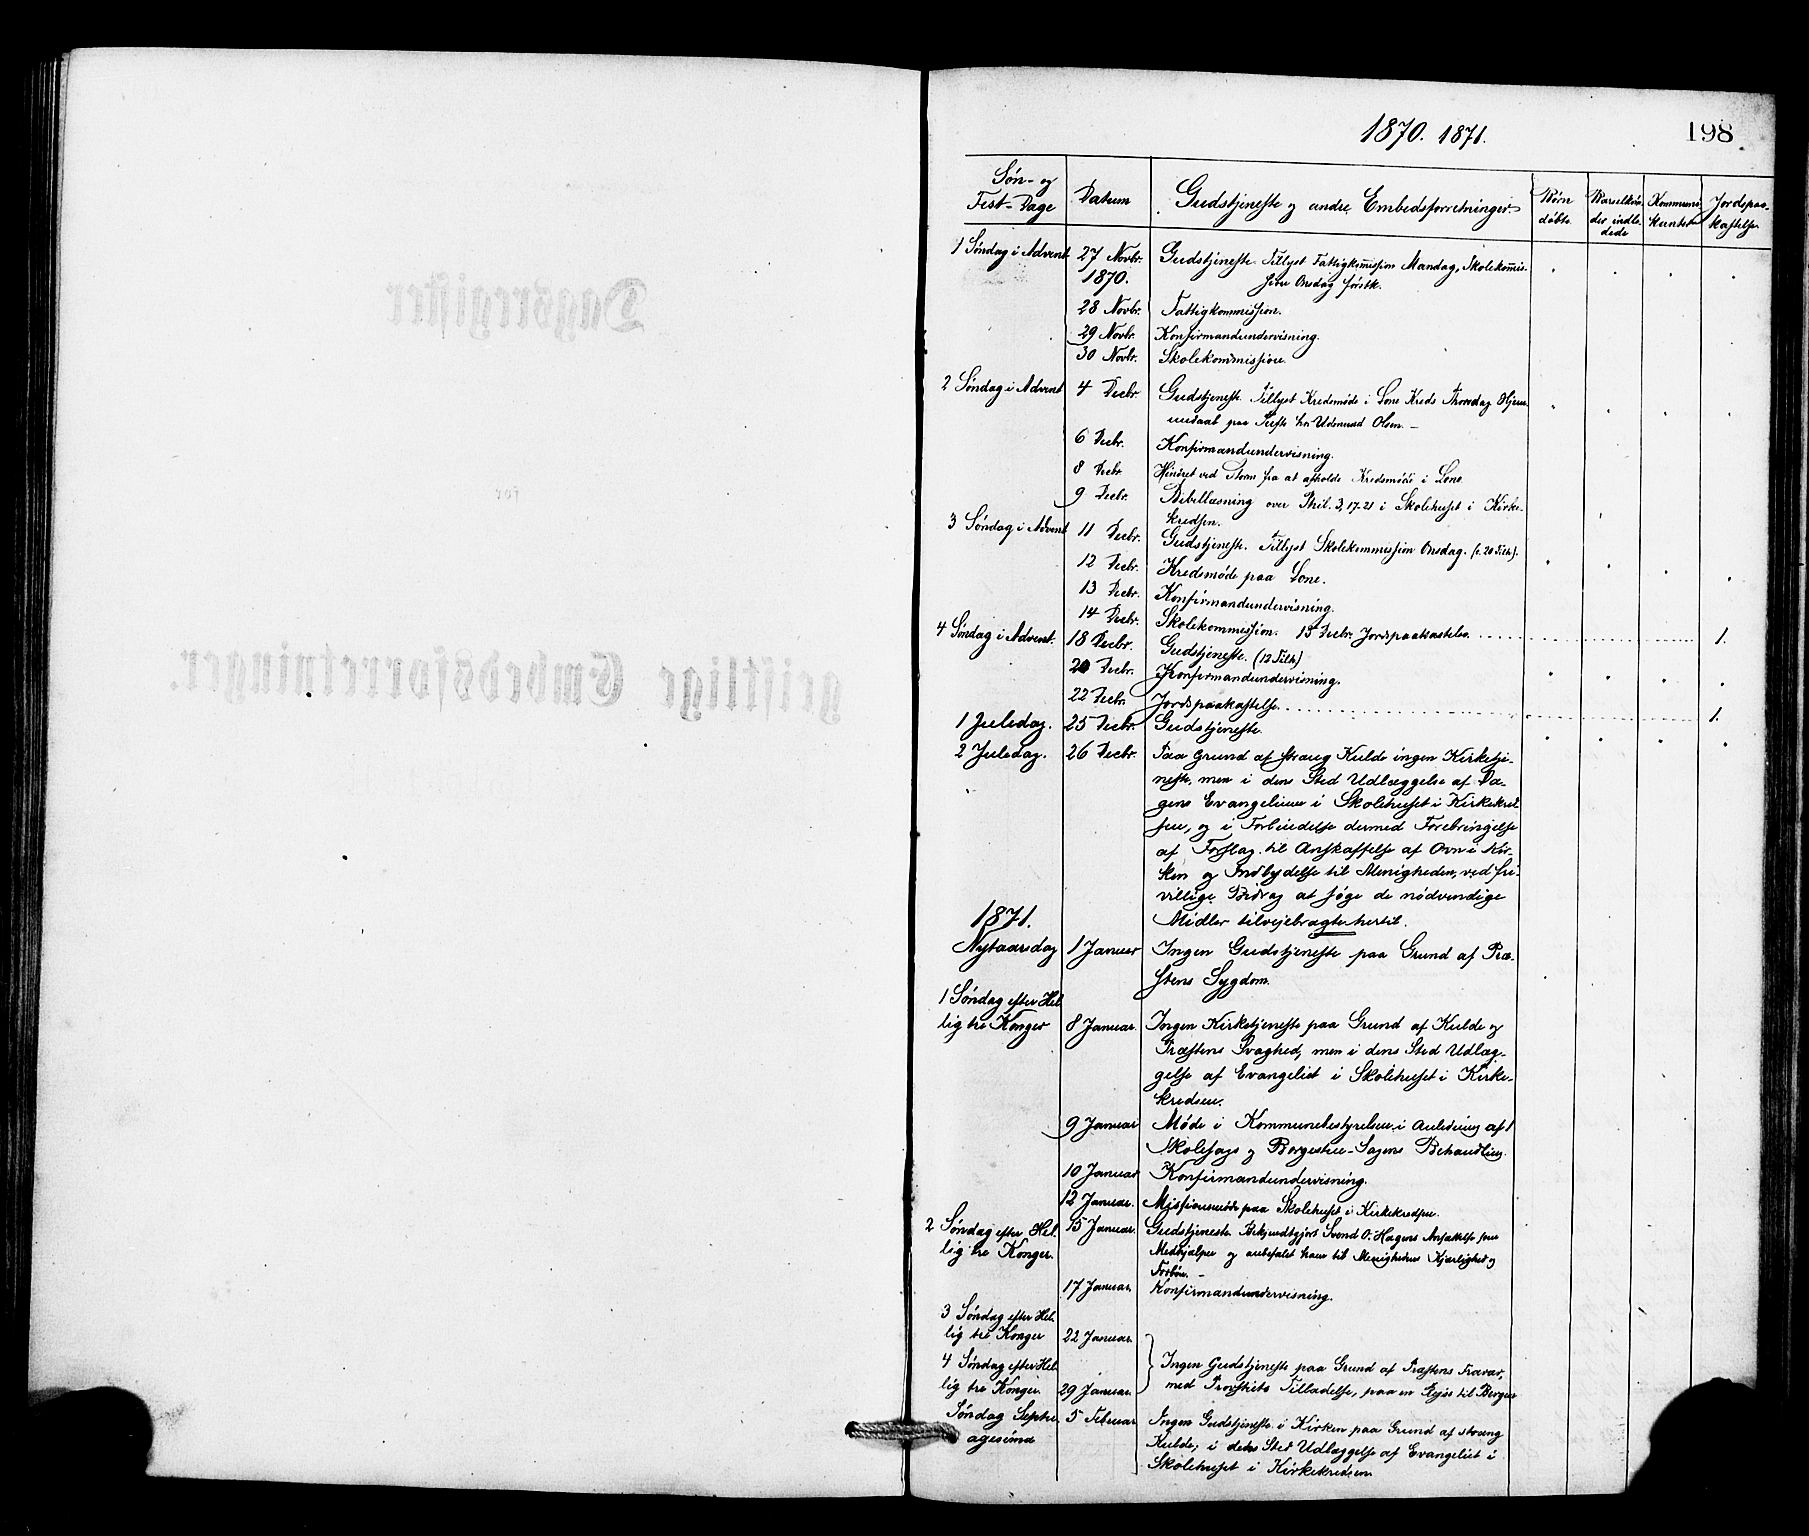 1870. 1871.
198
Søn- og Fest-Dage
Datum
Gudstjeneste og andre Embedsforretninger.
Børn døbte
Barselkvinder indledede
Kommunikanter
Jordspaakastelse
1 Søndag i Advent 27 Novbr. Gudstjeneste. Tillyst Fattigkomission Mandag, Skolekomis-
1870. sion Onsdag førstk.
28 Novbr. Fattigkommission.
29 Novbr. Konfirmandundervisning.
30 Novbr. Skolekommission.
2 Søndag i Advent 4 Decbr. Gudstjeneste. Tillyst Kredsmøde i Lone Kreds Thorsdag
paa Tufte hr Udmund Olsen.
6 Decbr. Konfirmandundervisning.
8 Decbr. Hindret ved Storm fra at afholde Kredsmøde i Lone.
9 Decbr. Bibellæsning over Phil. 3, 17-21 i Skolehuset i Kirke-
kredsen.
3 Søndag i Advent 11 Decbr. Gudstjeneste. Tillyst Skolekommission Onsdag. (c. 20 Tilh).
12 Decbr. Kredsmøde paa Lone.
13 Decbr. Konfirmandundervisning.
14 Decbr. Skolekommission. 15 Decbr. Jordspaakastelse 1.
4 Søndag i Advent. 18 Decbr. Gudstjeneste. (12 Tilh)
20 Decbr. Konfirmandundervisning.
22 Decbr. Jordspaakastelse. 1.
1 Juledag. 25 Decbr. Gudstjeneste.
2 Juledag. 26 Decbr. Paa Grund af stræng Kulde ingen Kirketje-
neste, men i dens Sted Udlæggelse af Da-
gens Evangelium i Skolehuset i Kirkekred-
sen, og i Forbindelse dermed Forebringelse
af Forslag til Anskaffelse af Ovn i Kir-
ken og Indbydelse til Menigheden, ved fri-
villige Bidrag at søge de nödvendige
Midler tilvejebragte hertil.
1871.
Nytaarsdag 1 Januar Ingen Gudstjeneste paa Grund af Præ-
stens Sygdom.
1 Søndag efter Hel
lig tre Konger 8 Januar. Ingen Kirketjeneste paa Grund af Kulde og
Præstens Svaghed, men i dens Sted Udlæg-
gelse af Evangeliet i Skolehuset i Kirke-
kredsen.
9 Januar Møde i Kommunebestyrelsen i Anledning af
Skolesags og Borgestue-Sagens Behandling.
10 Januar Konfirmandundervisning.
12 Januar. Missionsmøde paa Skolehuset i Kirkekredsen.
2 Søndag efter Hel. 15 Januar. Gudstjeneste. Bekjendtgjort Svend O. Hagens Ansættelse som
lig tre Konger. Medhjælper og anbefalet ham til Menighedens Kjærlighed og
Forbön.
17 Januar. Konfirmandundervisning.
3 Søndag efter Hel.
lig tre Konger 22 Januar.
4 Søndag efter Hel. Ingen Gudstjeneste paa Grund af Præstens Fravær,
lig tre Konger. 29 Januar. med Provstiets Tilladelse, paa en Rejse til Bergen
Søndag Septu 5 Februar Ingen Gudstjeneste i Kirken paa Grund af stræng
agesima Kulde; i dens Sted Udlæggelse af Evangeliet i
Skolehuset i Kirkekredsen.
Dagsregister
for
geistlige Embedsforretninger.